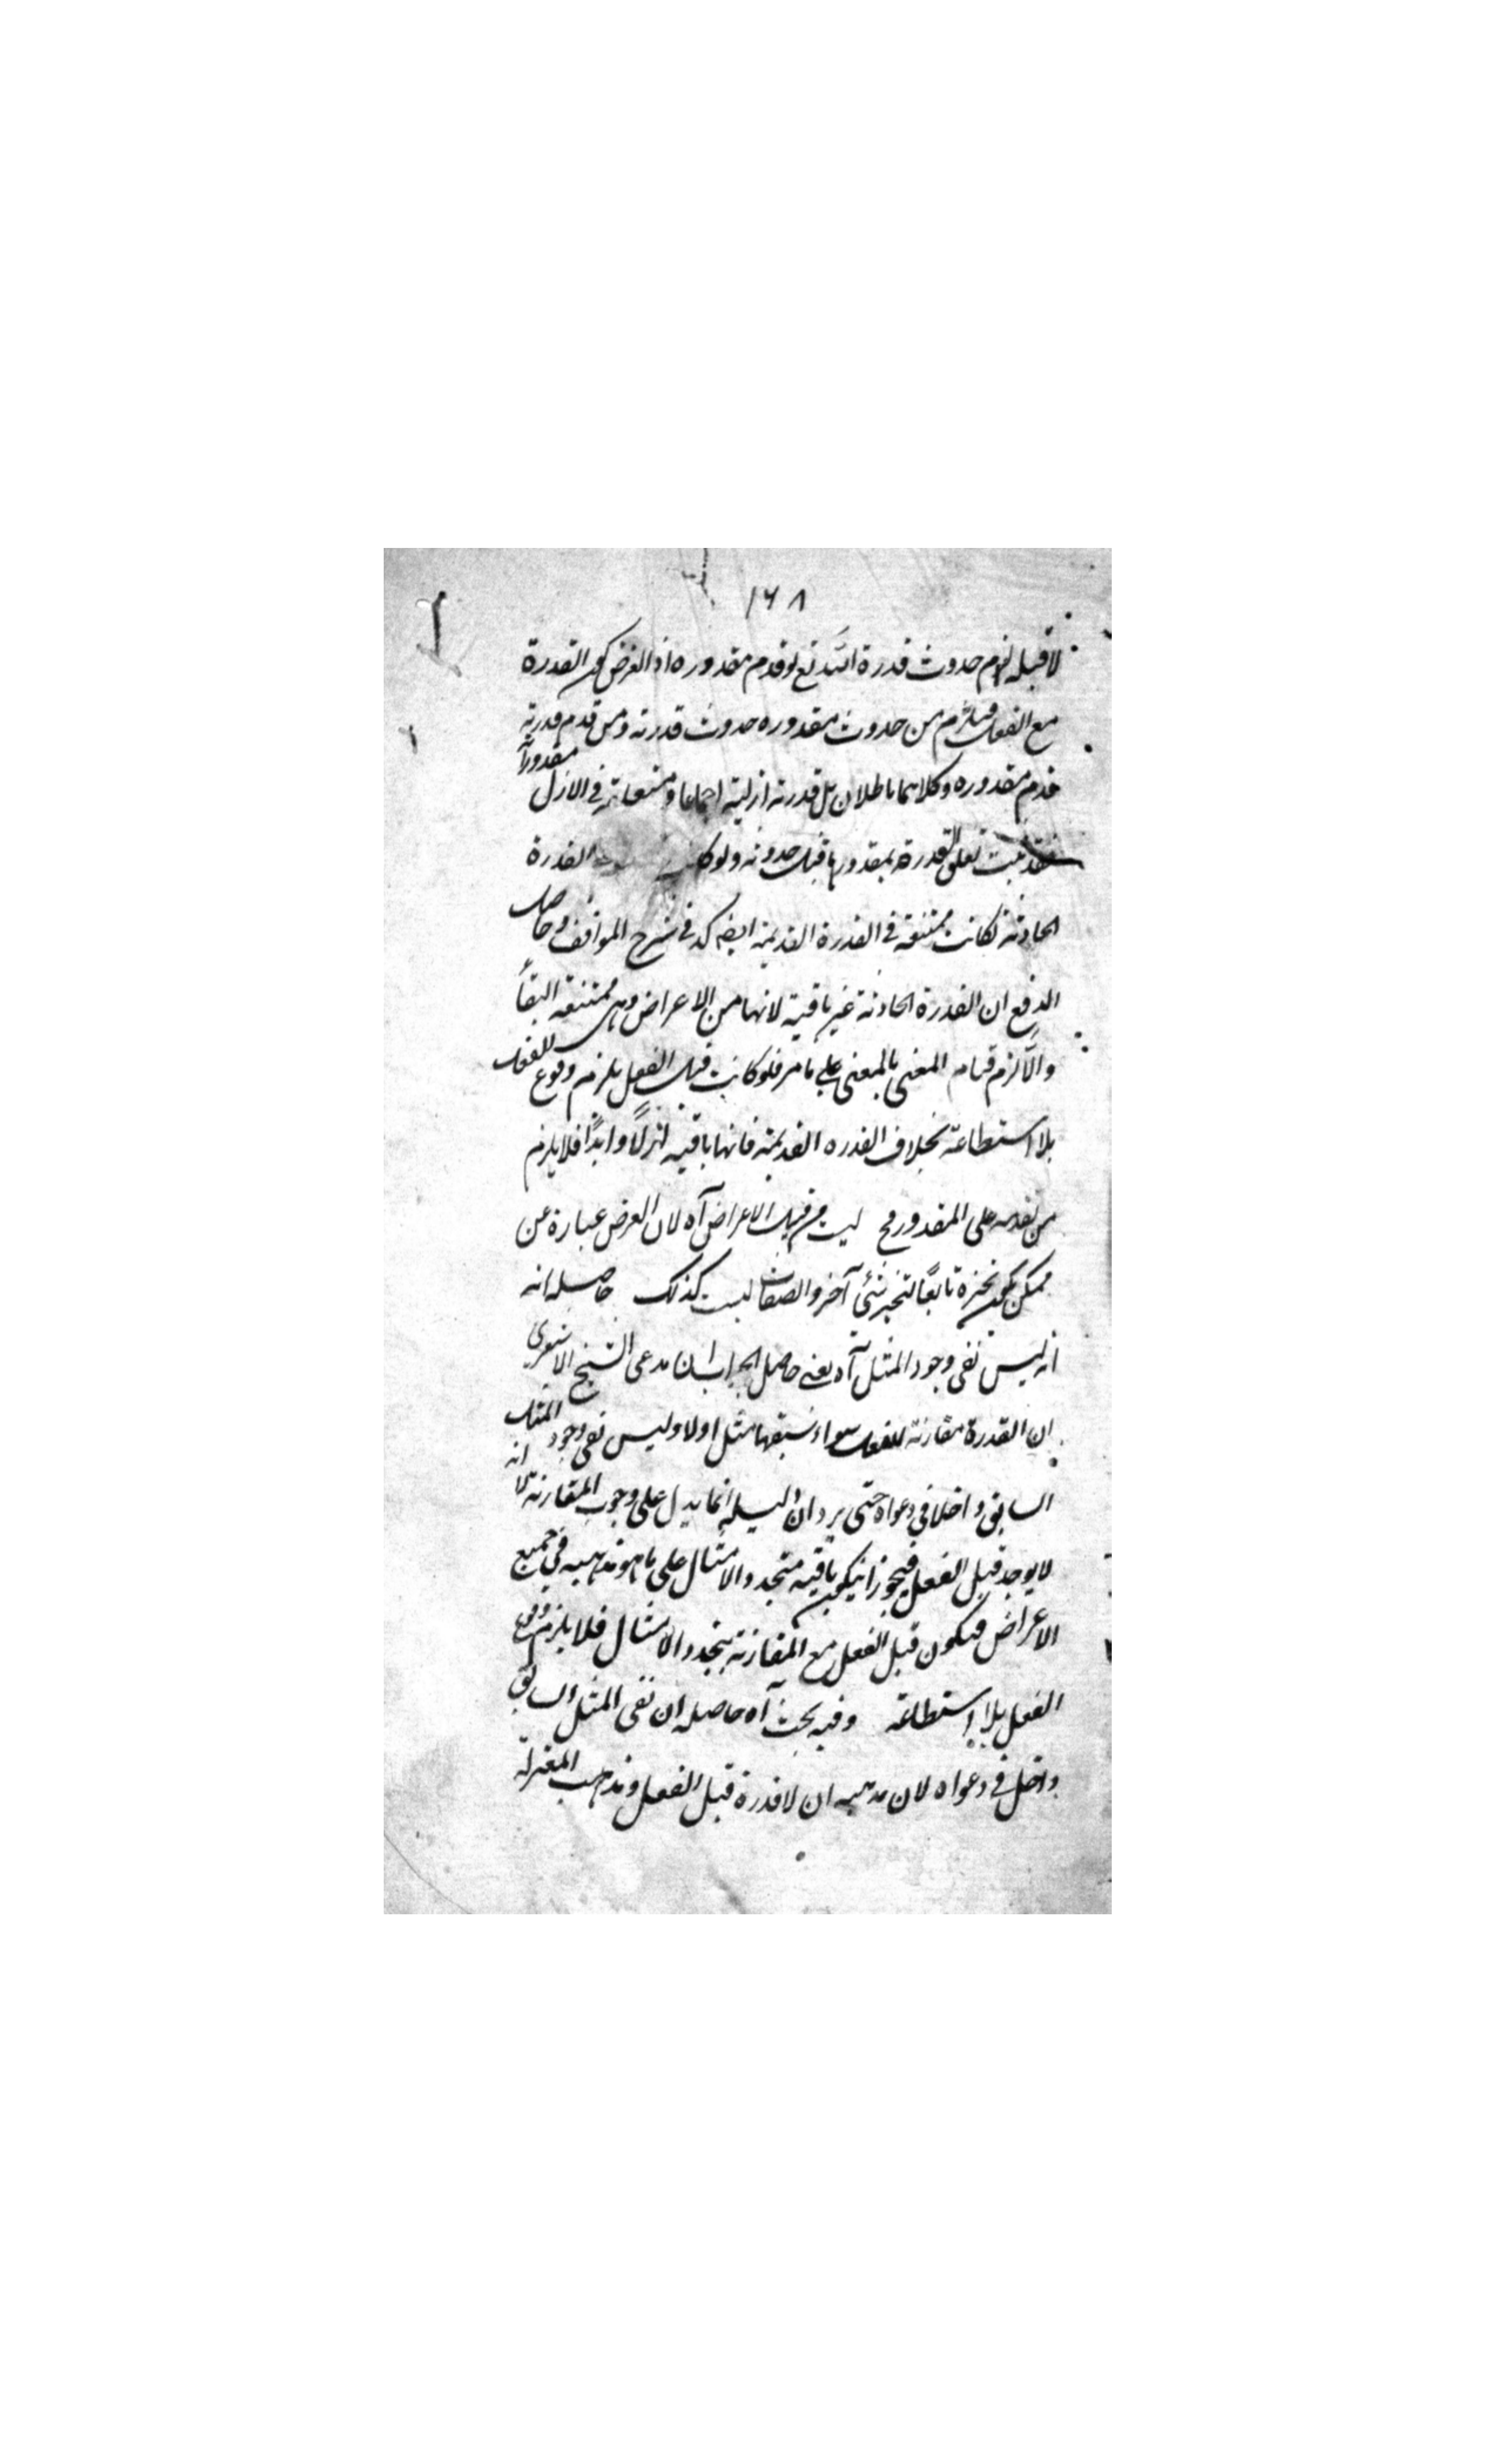 ١٦٨
لا قبله لزم حدوث قدرة الله تع او قدم مقدوره اذ الفرض كون القدرة
مع الفعل فيلزم من حدوث مقدوره حدوث قدرته ومن قدم قدرته
قدم مقدوره وكلاهما باطلان بل قدرته ازلية اجماعا ومتعلقة في الازل مقدوراته
فقد ثبت تعلق القدرة بمقدورها قبل حدوثه ولو كانت القدرة
الحادثة لكانت ممتنعة في القدرة القديمة ايضا كذ في شرح المواقف وحاصل
الدفع ان القدرة الحادثة غير باقية لانها من الاعراض وهي ممتنعة البقاء
والا لزم قيام المعنى بالمعنى على ما مر فلو كانت قبل الفعل يلزم وقوع الفعل
بلا استطاعة بخلاف القدرة القديمة فانها باقية ازلا وابدا فلا يلزم
من تقدمه على المقدور مح ليست من قبيل الاعراض آه لان العرض عبارة عن
ممكن يكون تحيزه تابعا لتحيز شئ آخر والصفات ليست كذلك حاصله انه
انه ليس نفى وجود المثل آه يعنى حاصل الجواب ان مدعى الشيخ الاشعرى
ان القدرة مقارنة للفعل سواء سبقها مثل اولا وليس نفى وجود المثل
السابق داخلا في دعواه حتى يرد ان الدليل انما يدل على وجوب المقارنة لا انه
لا يوجد قبل الفعل فيجوز ان يكون باقية متجدد الامثال على ما هو مذهبه في جميع
الاعراض فيكون قبل الفعل مع المقارنة بتجدد الامثال فلا يلزم وقوع
الفعل بلا استطاعة وفيه بحث آه حاصله ان نفى المثل السابق
داخل في دعواه لان مذهبه ان لا قدرة قبل الفعل ومذهب المعتزلة